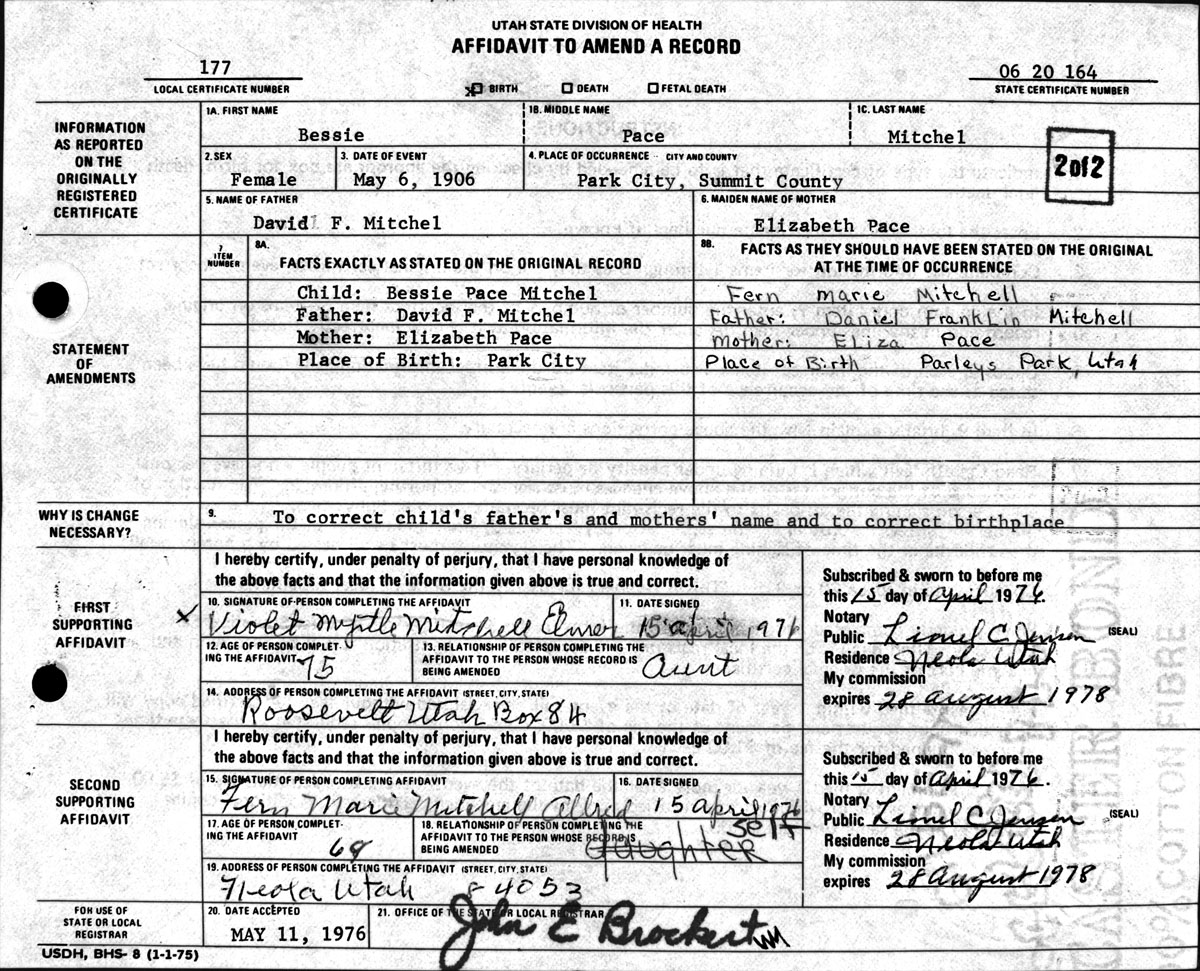 UTAH STATE DIVISION OF HEALTH
AFFIDAVIT TO AMEND A RECORD
177
LOCAL CERTIFICATE NUMBER
x BIRTH DEATH FETAL DEATH
06 20 164
STATE CERTIFICATE NUMBER
INFORMATION
AS REPORTED
ON THE
ORIGINALLY
REGISTERED
CERTIFICATE
1A. FIRST NAME 1B. MIDDLE NAME 1C. LAST NAME
Bessie Pace Mitchel
2. SEX 3. DATE OF EVENT 4. PLACE OF OCCURRENCE - CITY AND COUNTY
Female May 6, 1906 Park City, Summit County
2 of 2
5. NAME OF FATHER 6. MAIDEN NAME OF MOTHER
David F. Mitchel Elizabeth Pace
STATEMENT
OF
AMENDMENTS
7
ITEM
NUMBER
8A.
FACTS EXACTLY AS STATED ON THE ORIGINAL RECORD
8B. FACTS AS THEY SHOULD HAVE BEEN STATED ON THE ORIGINAL
AT THE TIME OF OCCURRENCE
Child: Bessie Pace Mitchel Fern marie Mitchell
Father: David F. Mitchel Father: Daniel Franklin Mitchell
Mother: Elizabeth Pace mother: Eliza Pace
Place of Birth: Park City Place of Birth Parleys Park, Utah
WHY IS CHANGE
NECESSARY?
9. To correct child's father's and mothers' name and to correct birthplace
FIRST
SUPPORTING
AFFIDAVIT
I hereby certify, under penalty of perjury, that I have personal knowledge of
the above facts and that the information given above is true and correct.
10. SIGNATURE OF PERSON COMPLETING THE AFFIDAVIT 11. DATE SIGNED
x Violet Myrtle Mitchell Elmer 15 april, 1976
12. AGE OF PERSON COMPLETING THE AFFIDAVIT 75
13. RELATIONSHIP OF PERSON COMPLETING THE
AFFIDAVIT TO THE PERSON WHOSE RECORD IS
BEING AMENDED Aunt
14. ADDRESS OF PERSON COMPLETING THE AFFIDAVIT (STREET, CITY, STATE)
Roosevelt Utah Box 84
Subscribed & sworn to before me
this 15 day of April 1976.
Notary
Public Lionel C. Jensen (SEAL)
Residence Neola Utah
My commission
expires 28 august 1978
SECOND
SUPPORTING
AFFIDAVIT
I hereby certify, under penalty of perjury, that I have personal knowledge of
the above facts and that the information given above is true and correct.
15. SIGNATURE OF PERSON COMPLETING AFFIDAVIT 16. DATE SIGNED
Fern Marie Mitchell Allred 15 april 1976
17. AGE OF PERSON COMPLETING THE AFFIDAVIT 69
18. RELATIONSHIP OF PERSON COMPLETING THE
AFFIDAVIT TO THE PERSON WHOSE RECORD IS
BEING AMENDED daughter self
19. ADDRESS OF PERSON COMPLETING THE AFFIDAVIT (STREET, CITY, STATE)
Neola Utah 84053
Subscribed & sworn to before me
this 15 day of April 1976.
Notary
Public Lionel C. Jensen (SEAL)
Residence Neola Utah
My commission
expires 28 august 1978
FOR USE OF
STATE OR LOCAL
REGISTRAR
20. DATE ACCEPTED 21. OFFICE OF THE STATE OR LOCAL REGISTRAR
MAY 11, 1976 John E Brockert
USDH, BHS- 8 (1-1-75)